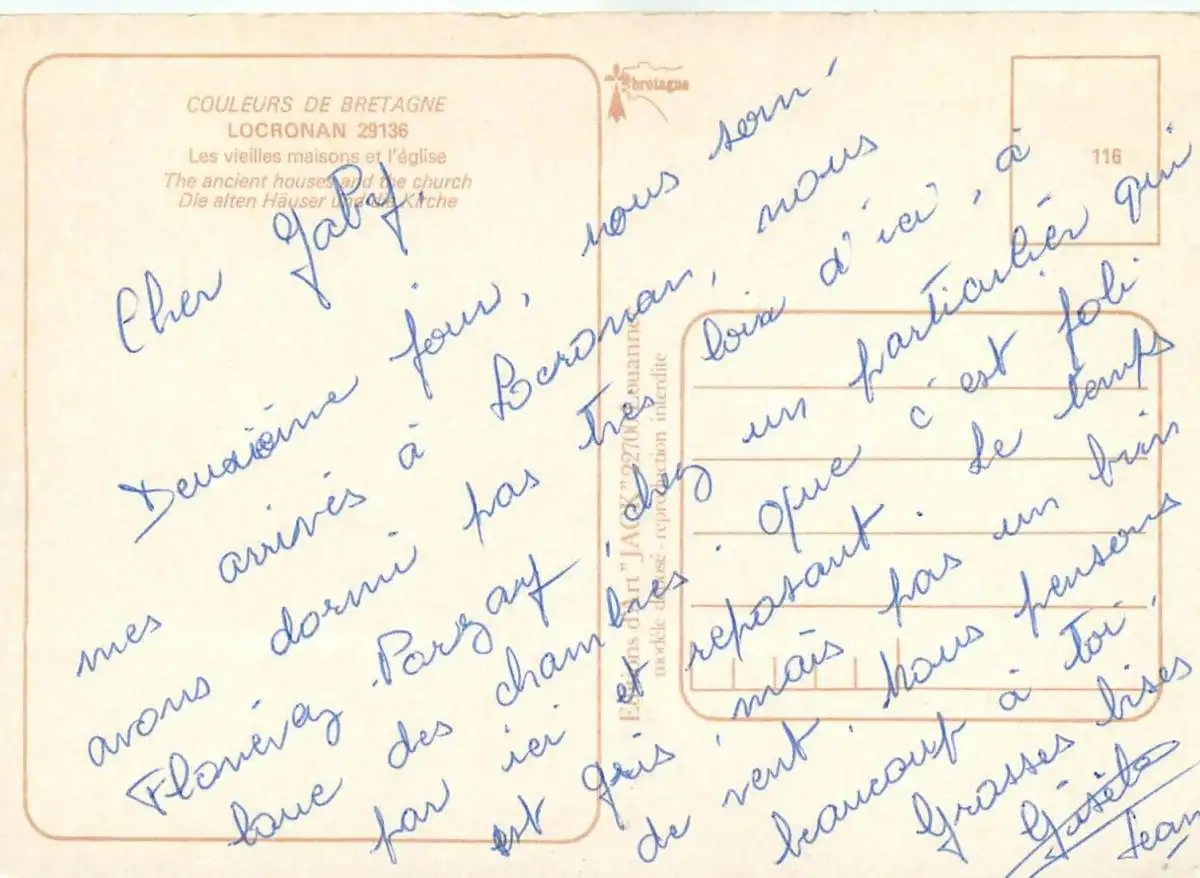 COULEURS DE BRETAGNE
LOCRONAN 29136
Les vieilles maisons et l'église
The ancient houses and the church
Die alten Häuser und die Kirche
bretagne
116
Editions d'Art "JACK" 22700 Louannec
modèle déposé - reproduction interdite
Cher Gaby,
Deuxième jour, nous som-
mes arrivés à Locronan, nous
avons dormi pas très loin d'ici, à
Plonévez Porzay chez un particulier qui
loue des chambres. Que c'est joli
par ici et reposant. Le temps
est gris mais pas un brin
de vent. Nous pensons
beaucoup à toi.
Grosses bises
Gisèle
Jean